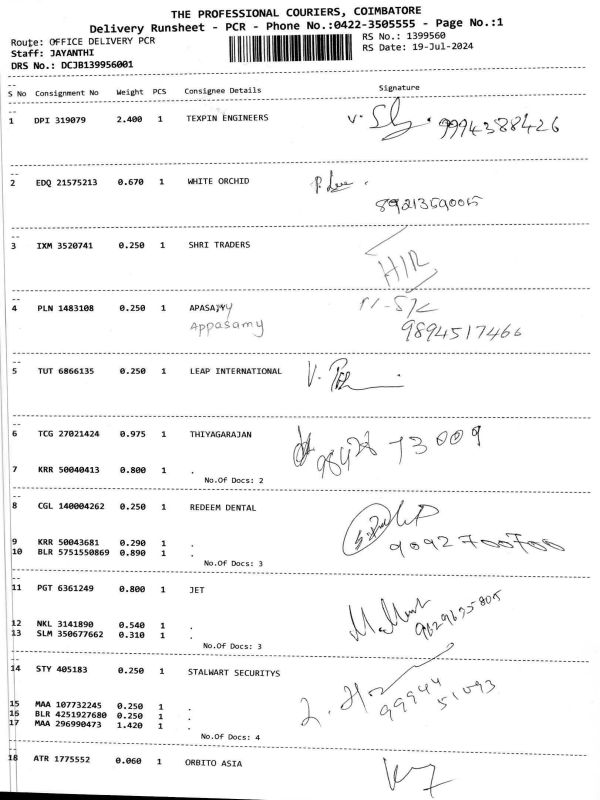 THE PROFESSIONAL COURIERS, COIMBATORE
Delivery Runsheet - PCR - Phone No.:0422-3505555 - Page No.:1
Route: OFFICE DELIVERY PCR
RS No.: 1399560
Staff: JAYANTHI
RS Date: 19-Jul-2024
DRS No.: DCJB139956001
S No Consignment No Weight PCS Consignee Details Signature
1 DPI 319079 2.400 1 TEXPIN ENGINEERS 9994388426
2 EDQ 21575213 0.670 1 WHITE ORCHID
3 IXM 3520741 0.250 1 SHRI TRADERS
4 PLN 1483108 0.250 1
Appasamy 9894517466
5 TUT 6866135 0.250 1 LEAP INTERNATIONAL
6 TCG 27021424 0.975 1 THIYAGARAJAN
7 KRR 50040413 0.800 1 .
No.Of Docs: 2
8 CGL 140004262 0.250 1 REDEEM DENTAL
9 KRR 50043681 0.290 1 . 9092700700
10 BLR 5751550869 0.890 1 .
No.Of Docs: 3
11 PGT 6361249 0.800 1 JET
12 NKL 3141890 0.540 1 . 9629635805
13 SLM 350677662 0.310 1 .
No.Of Docs: 3
14 STY 405183 0.250 1 STALWART SECURITYS
99944
51093
15 MAA 107732245 0.250 1 .
16 BLR 4251927680 0.250 1 .
17 MAA 296990473 1.420 1 .
No.Of Docs: 4
18 ATR 1775552 0.060 1 ORBITO ASIA